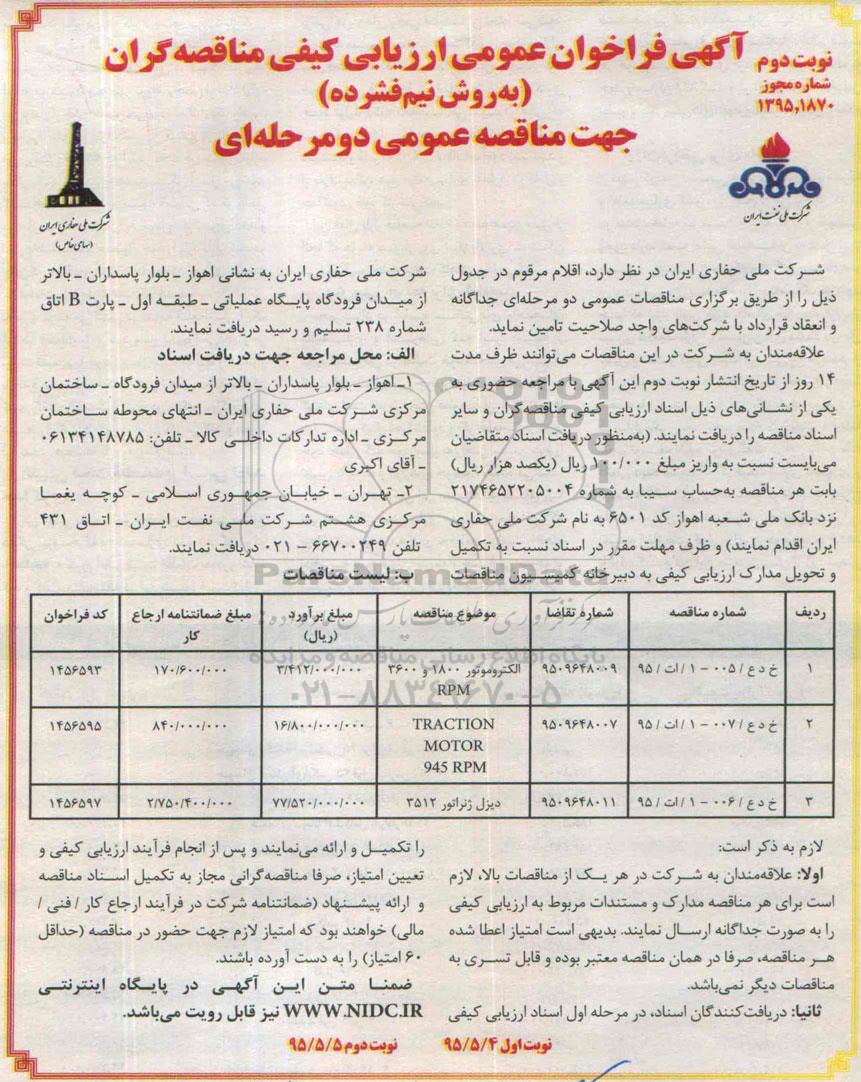 آگهی فراخوان عمومی ارزیابی کیفی مناقصه‌گران
(به‌روش نیم‌فشرده)
جهت مناقصه عمومی دومرحله‌ای
نوبت دوم
شماره مجوز
۱۳۹۵,۱۸۷۰
شرکت ملی نفت ایران
شرکت ملی حفاری ایران
(سهامی خاص)
شـرکت ملی حفاری ایران در نظر دارد، اقلام مرقوم در جدول
ذیل را از طریق برگزاری مناقصات عمومی دو مرحله‌ای جداگانه
و انعقاد قرارداد با شرکت‌های واجد صلاحیت تامین نماید.
علاقه‌مندان به شـرکت در این مناقصات می‌توانند ظرف مدت
۱۴ روز از تاریخ انتشار نوبت دوم این آگهی با مراجعه حضوری به
یکی از نشـانی‌های ذیل اسناد ارزیابی کیفی مناقصه‌گران و سایر
اسناد مناقصه را دریافت نمایند. (به‌منظور دریافت اسناد متقاضیان
می‌بایست نسبت به واریز مبلغ ۱۰۰/۰۰۰ ریال (یکصد هزار ریال)
بابت هر مناقصه به‌حساب سـیبا به شماره ۲۱۷۴۶۵۲۲۰۵۰۰۴
نزد بانک ملی شـعبه اهواز کد ۶۵۰۱ به نام شرکت ملی حفاری
ایران اقدام نمایند) و ظرف مهلت مقرر در اسناد نسبت به تکمیل
و تحویل مدارک ارزیابی کیفی به دبیرخانه کمیسـیون مناقصات
شرکت ملی حفاری ایران به نشانی اهواز ـ بلوار پاسداران ـ بالاتر
از میـدان فرودگاه پایـگاه عملیاتی ـ طبقـه اول ـ پارت B اتاق
شماره ۲۳۸ تسلیم و رسید دریافت نمایند.
الف: محل مراجعه جهت دریافت اسناد
۱ـ اهواز ـ بلوار پاسداران ـ بالاتر از میدان فرودگاه ـ ساختمان
مرکزی شـرکت ملی حفاری ایران ـ انتهای محوطه سـاختمان
مرکـزی ـ اداره تدارکات داخلـی کالا ـ تلفن: ۰۶۱۳۴۱۴۸۷۸۵
ـ آقای اکبری
۲ـ تهـران ـ خیابـان جمهـوری اسـلامی ـ کوچـه یغمـا
مرکـزی هشـتم شـرکت ملـی نفـت ایـران ـ اتـاق ۴۳۱
تلفن ۶۶۷۰۰۲۴۹ – ۰۲۱ دریافت نمایند.
ب: لیست مناقصات
ردیف | شماره مناقصه | شماره تقاضا | موضوع مناقصه | مبلغ برآورد (ریال) | مبلغ ضمانتنامه ارجاع کار | کد فراخوان
۱ | خ د ع / ۰۰۵ – ۱ / ات / ۹۵ | ۹۵۰۹۶۴۸۰۰۹ | الکتروموتور ۱۸۰۰ و ۳۶۰۰ RPM | ۳/۴۱۲/۰۰۰/۰۰۰ | ۱۷۰/۶۰۰/۰۰۰ | ۱۴۵۶۵۹۳
۲ | خ د ع / ۰۰۷ – ۱ / ات / ۹۵ | ۹۵۰۹۶۴۸۰۰۷ | TRACTION MOTOR 945 RPM | ۱۶/۸۰۰/۰۰۰/۰۰۰ | ۸۴۰/۰۰۰/۰۰۰ | ۱۴۵۶۵۹۵
۳ | خ د ع / ۰۰۶ – ۱ / ات / ۹۵ | ۹۵۰۹۶۴۸۰۱۱ | دیزل ژنراتور ۳۵۱۲ | ۷۷/۵۲۰/۰۰۰/۰۰۰ | ۲/۷۵۰/۴۰۰/۰۰۰ | ۱۴۵۶۵۹۷
لازم به ذکر است:
اولا: علاقه‌مندان به شـرکت در هر یـک از مناقصات بالا، لازم
است برای هر مناقصه مدارک و مستندات مربوط به ارزیابی کیفی
را به صورت جداگانه ارسـال نمایند. بدیهی است امتیاز اعطا شده
هـر مناقصه، صرفا در همان مناقصه معتبر بوده و قابل تسـری به
مناقصات دیگر نمی‌باشد.
ثانیـا: دریافت‌کنندگان اسناد، در مرحله اول اسناد ارزیابی کیفی
را تکمیـل و ارائه می‌نمایند و پس از انجام فرآیند ارزیابی کیفی و
تعیین امتیاز، صرفا مناقصه‌گرانی مجاز به تکمیل اسـناد مناقصه
و ارائه پیشـنهاد (ضمانتنامه شرکت در فرآیند ارجاع کار / فنی /
مالی) خواهند بود که امتیاز لازم جهت حضور در مناقصه (حداقل
۶۰ امتیاز) را به دست آورده باشند.
ضمنـا متـن ایـن آگهـی در پایـگاه اینترنتـی
WWW.NIDC.IR نیز قابل رویت می‌باشد.
نوبت اول ۹۵/۵/۴
نوبت دوم ۹۵/۵/۵
ParsNamadData
پایگاه اطلاع رسانی مناقصه و مزایده
۰۲۱-۸۸۳۴۹۶۷۰-۵